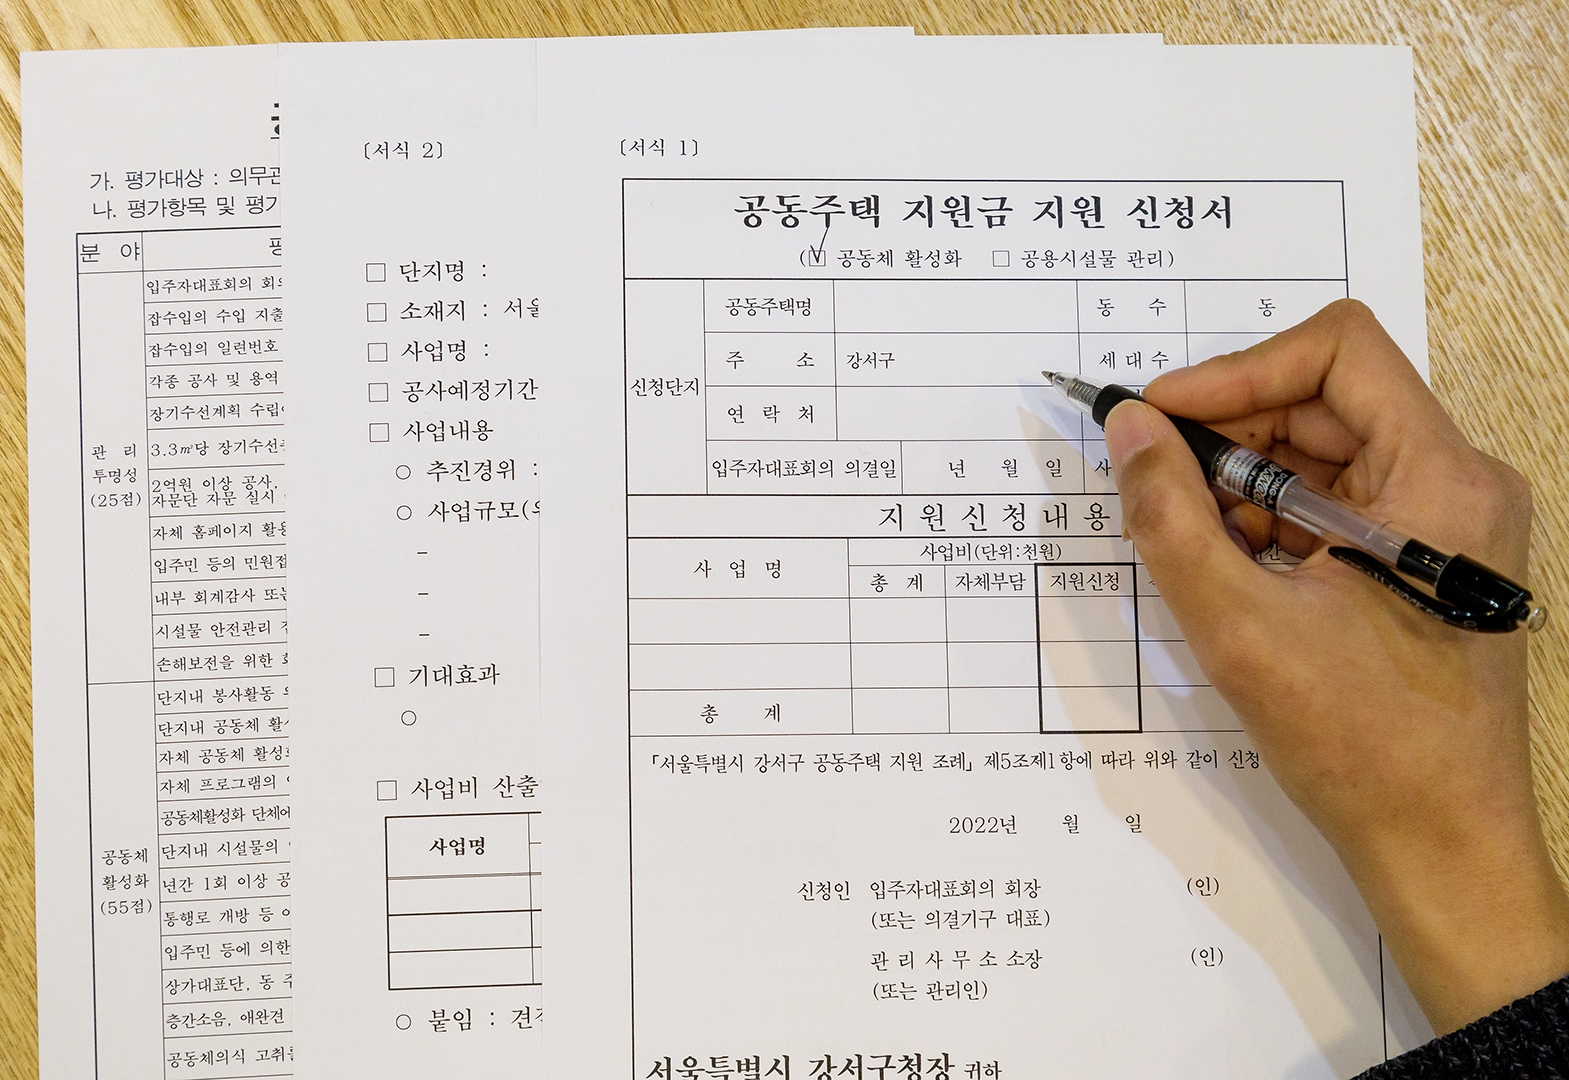 가. 평가대상 : 의무관
나. 평가항목 및 평가
분 야
관 리
투명성
(25점)
입주자대표회의 회의
잡수입의 수입 지출
잡수입의 일련번호
각종 공사 및 용역
장기수선계획 수립
3.3㎡당 장기수선
2억원 이상 공사,
자문단 자문 실시
자체 홈페이지 활용
입주민 등의 민원접
내부 회계감사 또는
시설물 안전관리
손해보전을 위한
공동체
활성화
(55점)
단지내 봉사활동
단지내 공동체 활
자체 공동체 활성화
자체 프로그램의
공동체활성화 단체에
단지내 시설물의
년간 1회 이상 공
통행로 개방 등
입주민 등에 의한
상가대표단, 동
층간소음, 애완견
공동체의식 고취를
〔서식 2〕
□ 단지명 :
□ 소재지 : 서울
□ 사업명 :
□ 공사예정기간
□ 사업내용
○ 추진경위 :
○ 사업규모(
－
－
－
□ 기대효과
○
□ 사업비 산출
사업명
○ 붙임 : 견적
〔서식 1〕
공동주택 지원금 지원 신청서
(☑ 공동체 활성화 □ 공용시설물 관리)
신청단지
공동주택명 동 수 동
주 소 강서구 세 대 수
연 락 처
입주자대표회의 의결일 년 월 일 사
지 원 신 청 내 용
사 업 명 사업비(단위:천원)
총 계 자체부담 지원신청
총 계
「서울특별시 강서구 공동주택 지원 조례」 제5조제1항에 따라 위와 같이 신청
2022년 월 일
신청인 입주자대표회의 회장 (인)
(또는 의결기구 대표)
관 리 사 무 소 소장 (인)
(또는 관리인)
서울특별시 강서구청장 귀하
DONG-A